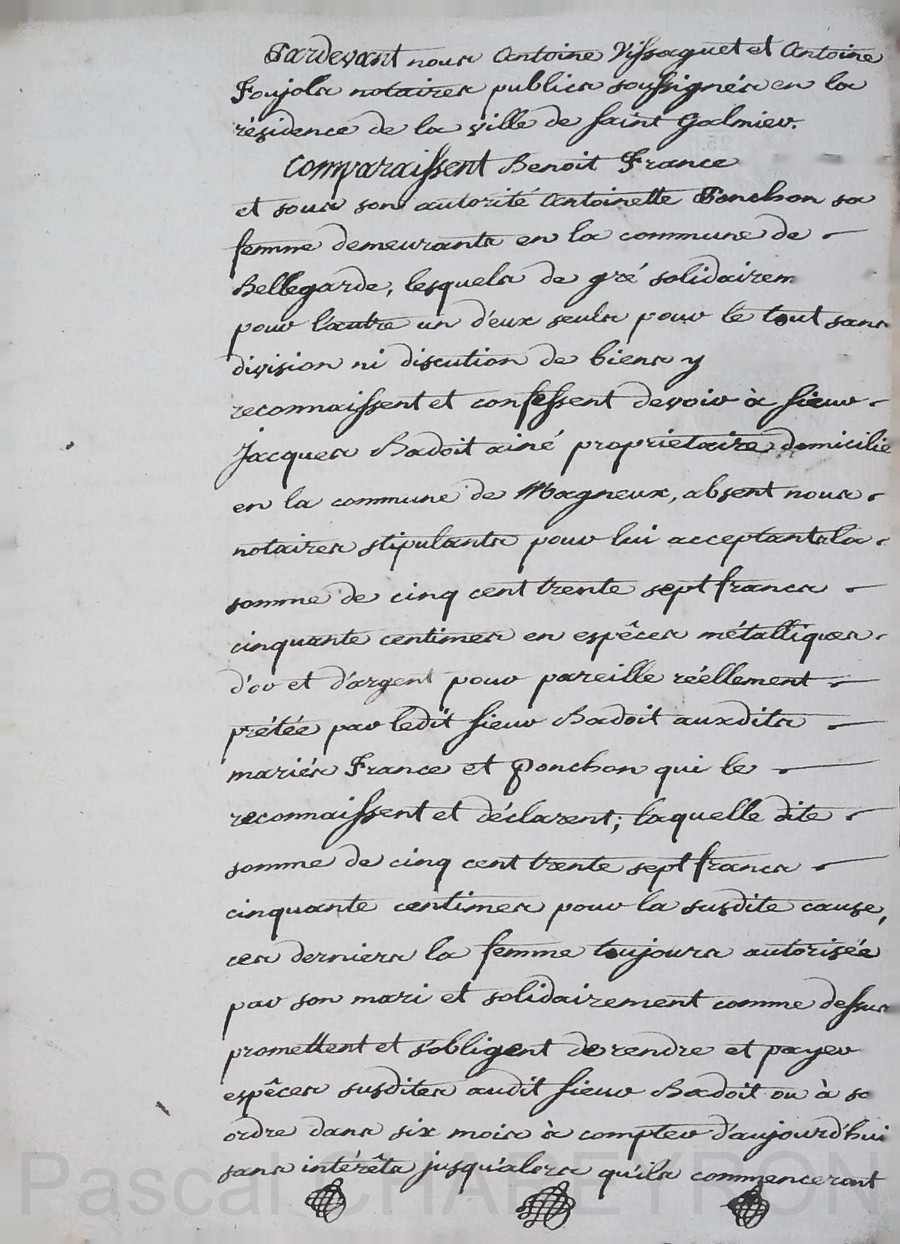 Pardevant nous Antoine Vissaguet et Antoine
Foujols notaires publics soussignés en la
résidence de la ville de Saint Galmier.
Comparaissent Benoit France
et sous son autorité Antoinette Ponchon sa
femme demeurants en la commune de
Bellegarde, lesquels de gré solidairem
pour l'autre un d'eux seuls pour le tout sans
division ni discution de biens y
reconnaissent et confessent devoir à sieur
Jacques Badoit ainé proprietaire domicilié
en la commune de Magneux, absent nous
notaires stipulants pour lui acceptants la
somme de cinq cent trente sept francs
cinquante centimes en espêces métalliques
d'or et d'argent pour pareille réellement
prétée par ledit sieur Badoit auxdits
mariés France et Ponchon qui le
reconnaissent et déclarent; laquelle dite
somme de cinq cent trente sept francs
cinquante centimes pour la susdite cause,
ces derniers la femme toujours autorisée
par son mari et solidairement comme dessus
promettent et s'obligent de rendre et payer
espêces susdites audit sieur Badoit ou à so
ordre dans six mois à compter d'aujourd'hui
sans intérêts jusqu'alors qu'ils commenceront
Pascal CHABEYRON